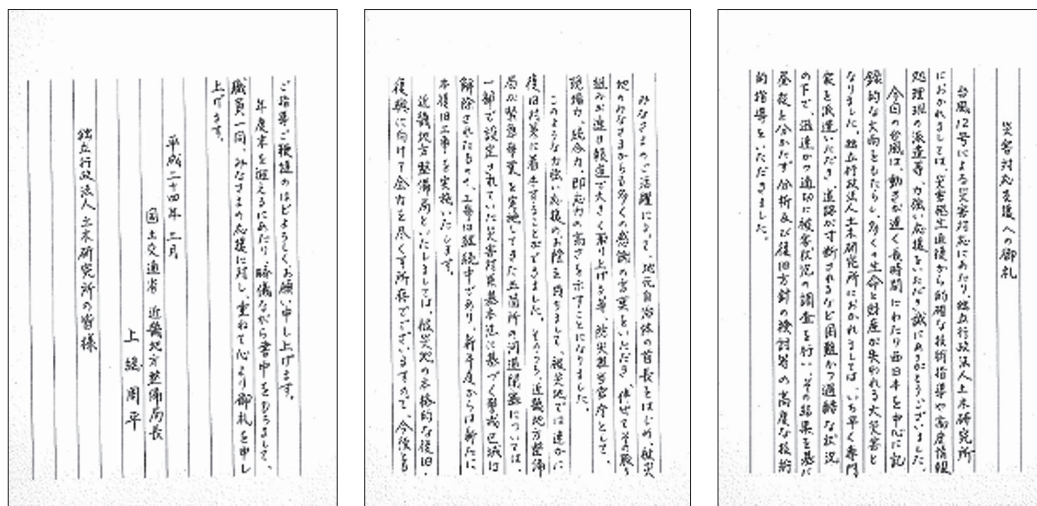 災害対応支援への御礼
台風12号による災害対応にあたり独立行政法人土木研究所
におかれましては、災害発生直後から的確な技術指導や高度情報
処理班の派遣等力強い応援をいただき誠にありがとうございました。
今回の台風は、動きが遅く長時間にわたり西日本を中心に記
録的な大雨をもたらし、多くの生命と財産が失われる大災害と
なりました。独立行政法人土木研究所におかれましては、いち早く専門
家を派遣いただき、道路が寸断されるなど困難かつ過酷な状況
の下で、迅速かつ適切に被害状況の調査を行い、その結果を基に
昼夜を分かたず分析及び復旧方針の検討等の高度な技術
的指導をいただきました。
みなさまのご活躍によって、地元自治体の首長をはじめ、被災
地のみなさまからも多くの感謝の言葉をいただき、併せてその取り
組みが連日報道で大きく取り上げる等、防災担当官庁として、
現場力、統合力、即応力の高さを示すことになりました。
このような力強い応援のお陰を持ちまして、被災地では速やかに
復旧対策に着手することができました。そのうち、近畿地方整備
局が緊急事業を実施してきた五箇所の河道閉塞については、
一部で設定されていた災害対策基本法に基づく警戒区域は
解除されたものの、工事は継続中であり、新年度からは新たに
本復旧工事を実施いたします。
近畿地方整備局といたしましては、被災地の本格的な復旧・
復興に向けて全力を尽くす所存でございますので、今後とも
ご指導ご鞭撻のほどよろしくお願い申し上げます。
年度末を迎えるにあたり、略儀ながら書中をもちまして、
職員一同、みなさまの応援に対し、重ねて心より御礼を申し
上げます。
平成二十四年三月
国土交通省 近畿地方整備局長
上総周平
独立行政法人土木研究所の皆様